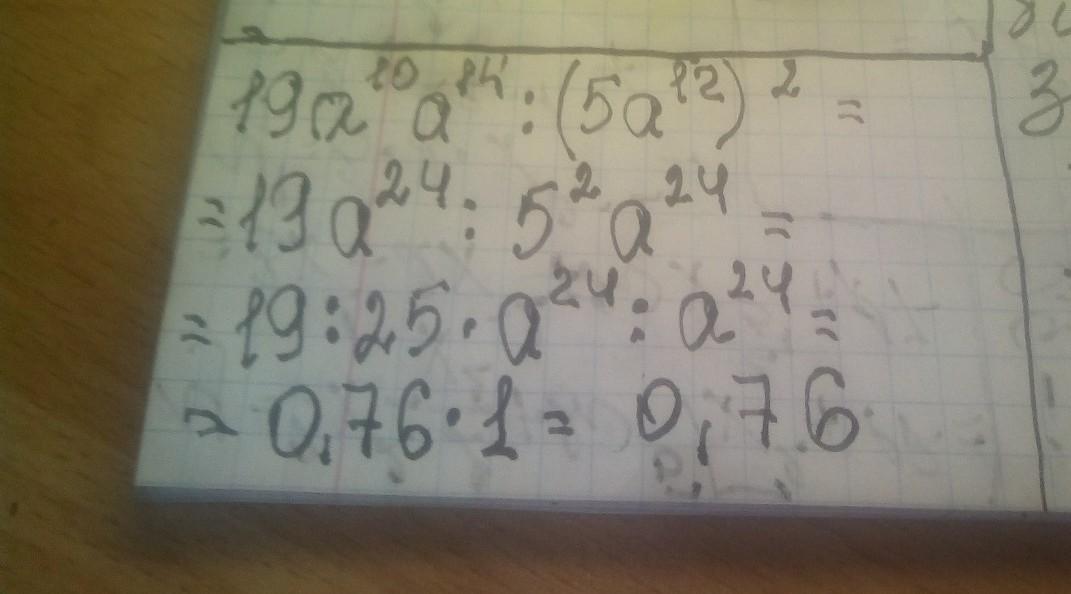 19a¹⁰a¹⁴:(5a¹²)² =
=19a²⁴: 5²a²⁴ =
= 19:25·a²⁴: a²⁴=
= 0,76·1= 0,76
3